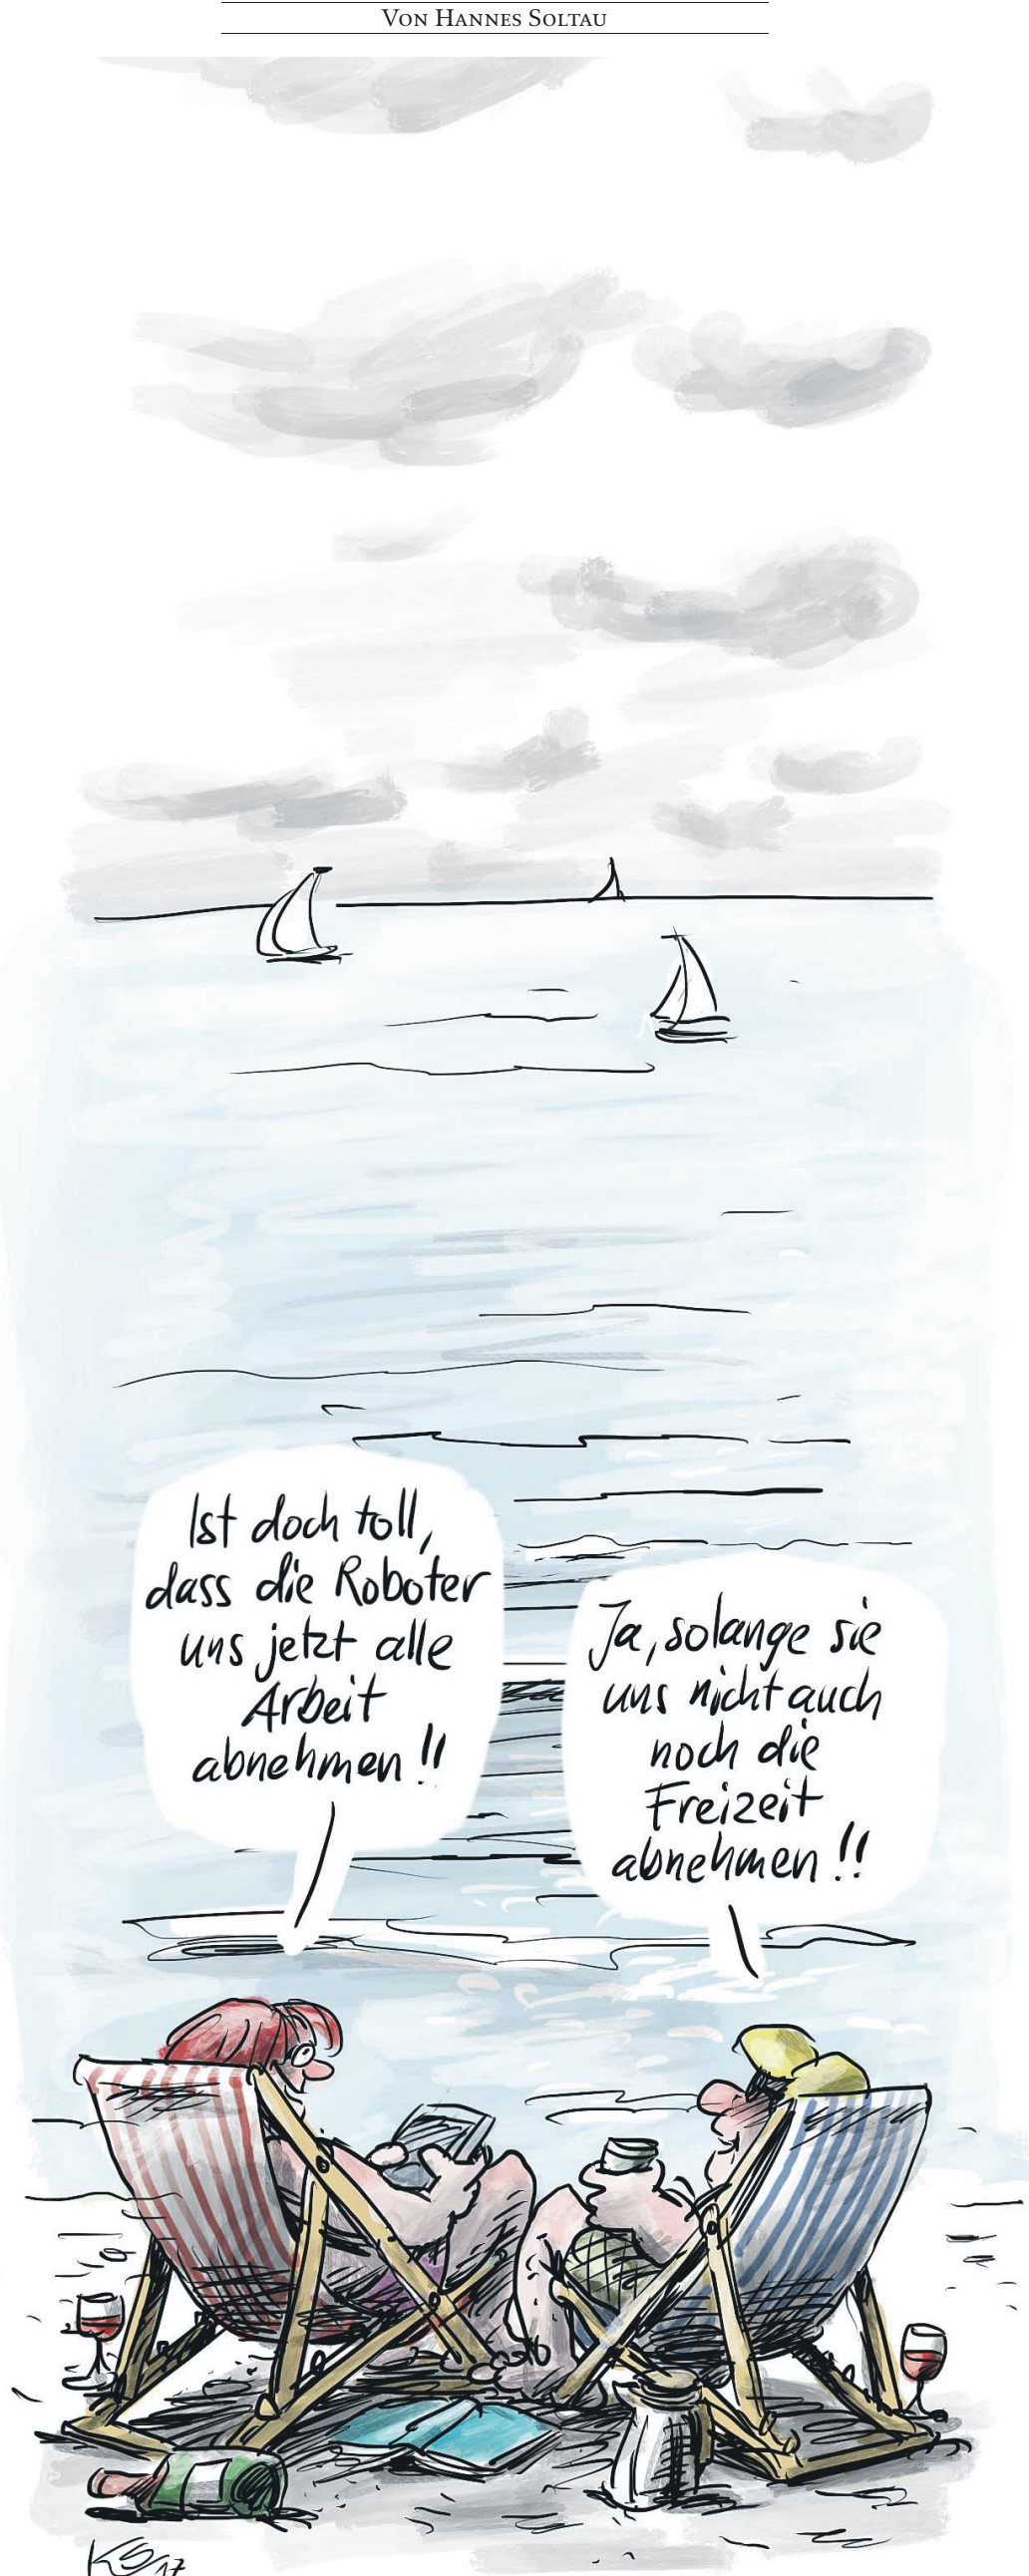 Von Hannes Soltau
Ist doch toll,
dass die Roboter
uns jetzt alle
Arbeit
abnehmen!!
Ja, solange sie
uns nicht auch
noch die
Freizeit
abnehmen!!
KS/17